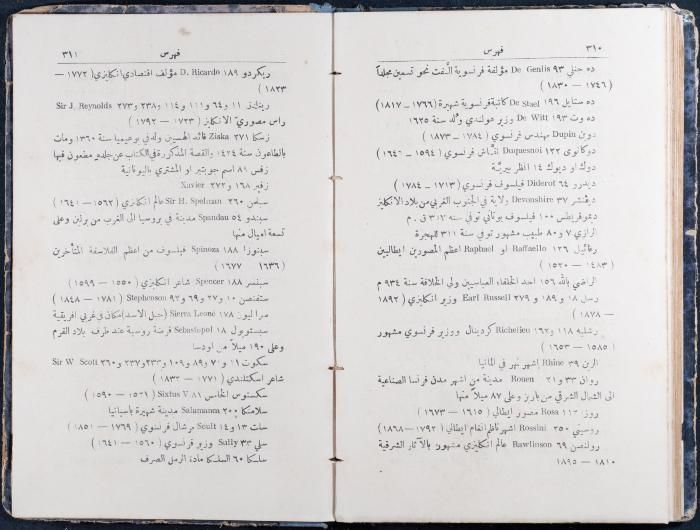 ٣١٠
فهرس
ده جنلي ٩٣ De Genlis مؤلفة فرنسوية الّفت نحو تسعين مجلداً
(١٧٤٦ — ١٨٣٠)
ده ستايل ١٩٦ De Stael كاتبة فرنسوية شهيرة (١٧٦٦ — ١٨١٧)
ده وت ٩٣ De Witt وزير هولندي وُلد سنة ١٦٢٥
دوبن Dupin مهندس فرنسوي (١٧٨٤ — ١٨٧٣)
دوكانوى ١٢٢ Duquesnoi نقّاش فرنسوي (١٥٩٤ — ١٦٤٦)
دوك او ديوك ١٤ انظر بيريّة
ديدرو ٦٤ Diderot فيلسوف فرنسوي (١٧١٣ — ١٧٨٤)
دڤنشر ٣٧ Devonshire ولاية في الجنوب الغربي من بلاد الانكليز
ديموقريطس ١٠٠ فيلسوف يوناني توفي سنة ٣٥٧ ق . م
الرازي ٧ و ٨٠ طبيب مشهور توفي سنة ٣١١ للهجرة
رفائيل ١٢٦ Raffaello او Raphael اعظم المصورين ايطاليين
(١٤٨٣ — ١٥٢٠)
الراضي بالله ١٥٦ احد الخلفاء العباسيين ولي الخلافة سنة ٩٣٤ م
رسل ١٨ و ١٨٩ و ٢٧٩ Earl Russell وزير انكليزي (١٨٩٢
— ١٨٧٨)
رشليه ١١٨ و ١٦٢ Richelieu كردينال ووزير فرنسوي مشهور
(١٥٨٥ — ١٦٥٣)
الرين ٣٩ Rhine اشهر نهر في المانيا
روان ٣٣ و ٢١ Rouen مدينة من اشهر مدن فرنسا الصناعية
الى الشمال الشرقي من باريز وعلى ٨٧ ميلاً منها
روزا ١١٢ Rosa مصور ايطالي (١٦١٥ — ١٦٧٣)
روسيني ٢٥٠ Rossini اشهر ناظم انغام ايطالي (١٧٩٢ — ١٨٦٨)
رولنصن ٦٩ Rawlinson عالم انكليزي مشهور بالآثار الشرقية
١٨١٠ — ١٨٩٥
فهرس
٣١١
ريكردو ١٨٩ D. Ricardo مؤلف اقتصادي انكليزي (١٧٧٢ —
١٨٢٣)
رينلدز ١١ و ٦٤ و ١١١ و ١١٤ و ٢٣٨ و ٢٧٣ Sir J. Reynolds
راس مصوريّ الانكليز (١٧٢٣ — ١٧٩٢)
زسكا ٢٧١ Ziska قائد الهسيين ولد في بوهيميا سنة ١٣٦٠ ومات
بالطاعون سنة ١٤٢٤ والقصة المذكورة في الكتاب عن جلدهِ مطعون فيها
زفس ٨١ اسم جوبتير او المشتري باليونانية
زفير ١٦٨ و ٢٧٢ Xavier
سبلمن ٢٦٠ Sir H. Spelman عالم انكليزي (١٥٦٢ — ١٦٤١)
سبندو ٥٤ Spandau مدينة في بروسيا الى الغرب من برلين وعلى
تسعة اميال منها
سبنوزا ١٨٨ Spinoza فيلسوف من اعظم الفلاسفة المتأخرين
(١٦٣٦ — ١٦٧٧)
سبنسر ١٨٨ Spencer شاعر انكليزي (١٥٥٠ — ١٥٩٩)
ستفنصن ١٠ و ٢٧ و ٦٩ و ٩٢ Stephenson (١٧٨١ — ١٨٤٨)
سرا ليون ١٧٨ Sierra Leoné (جبل الاسد) مكان في غربي افريقية
سبستوبول ١٨ Sebastopol فرضة روسية عند طرف بلاد القرم
وعلى ١٩٠ ميلاً من اودسا
سكوت ١١ و ٧١ و ٨٩ و ١٠٩ و ٢٣٣ و ٢٣٧ و ٢٦٠ Sir W Scott
شاعر اسكتلندي (١٧٧١ — ١٨٣٢)
سكستوس الخامس ٨١ Sixtus V (١٥٢١ — ١٥٩٠)
سلامنكا ٢٠٠ Salamanca مدينة شهيرة باسبانيا
سلت ١٣ و ١٤ Soult مرشال فرنسوي (١٧٦٩ — ١٨٥١)
سلي ٣٣ Sully وزير فرنسوي (١٥٦٠ — ١٦٤١)
سلسكا ٦٠ السلسكا مادة الرمل الصرف